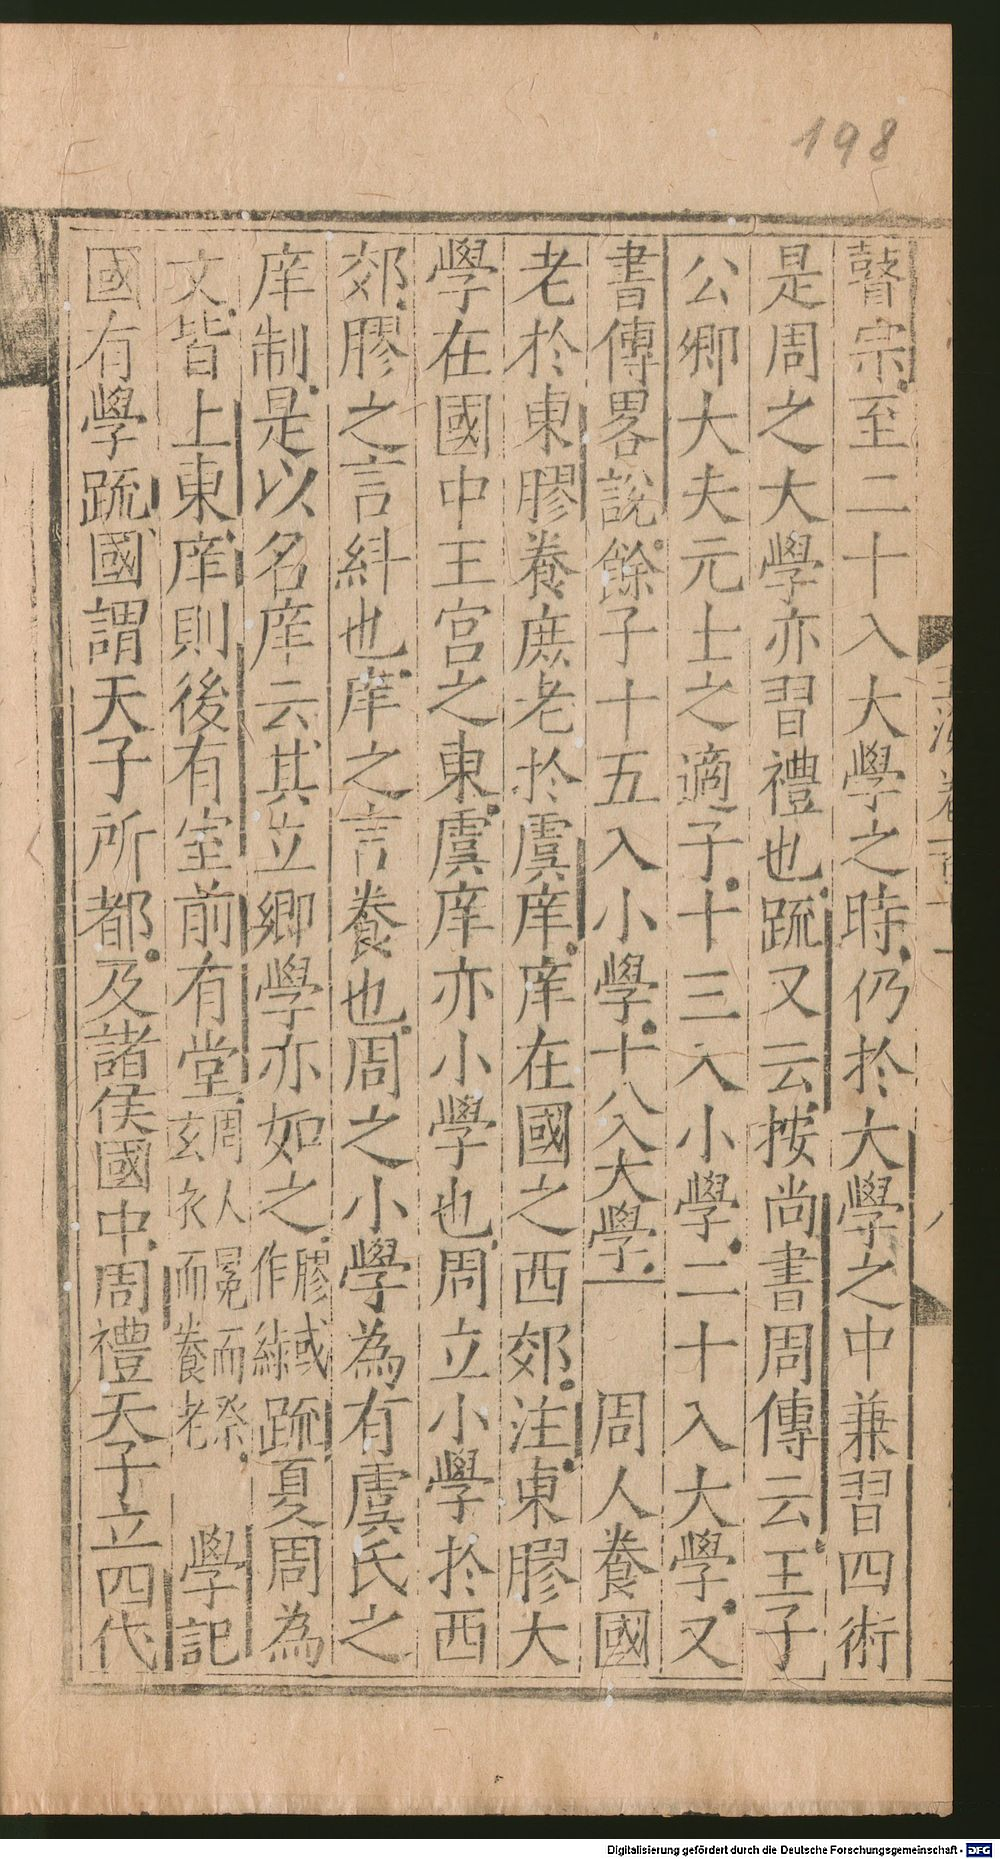 198
瞽宗至二十入大學之時仍於大學之中兼習四術
是周之大學亦習禮也疏又云按尚書周傳云王子
公卿大夫元士之適子十三入小學二十入大學又
書傳畧說餘子十五入小學十八入大學　周人養國
老於東膠養庶老於虞庠庠在國之西郊注東膠大
學在國中王宮之東虞庠亦小學也周立小學於西
郊膠之言糾也庠之言養也周之小學為有虞氏之
庠制是以名庠云其立鄉學亦如之膠或作緑疏夏周為
文皆上東庠則後有室前有堂周人冕而祭玄衣而養老　學記
國有學疏國謂天子所都及諸侯國中周禮天子立四代
Digitalisierung gefördert durch die Deutsche Forschungsgemeinschaft - DFG